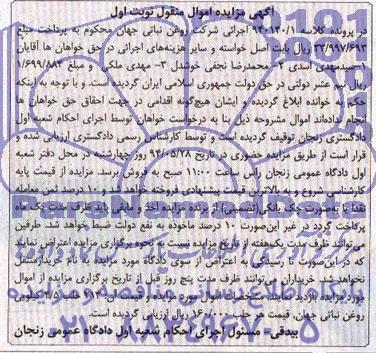 آگهی مزایده اموال منقول نوبت اول
در پرونده کلاسه ۹۳۰۱۳۰/۱ اجرائی شرکت روغن نباتی جهان محکوم به پرداخت مبلغ
۳۳/۹۹۷/۶۹۳ ریال بابت اصل خواسته و سایر هزینه‌های اجرائی در حق خواهان ها آقایان
۱-سیدمهدی اسدی ۲- محمدرضا نجفی خوشدل ۳- مهدی ملکی و مبلغ ۱/۶۹۹/۸۸۴
ریال نیم عشر دولتی در حق دولت جمهوری اسلامی ایران گردیده است. و با توجه به اینکه
حکم به خوانده ابلاغ گردیده و ایشان هیچگونه اقدامی در جهت احقاق حق خواهان ها
انجام نداده‌اند اموال مشروحه ذیل بنا به درخواست خواهان توسط اجرای احکام شعبه اول
دادگستری زنجان توقیف گردیده است و توسط کارشناس رسمی دادگستری ارزیابی شده و
قرار است از طریق مزایده حضوری در تاریخ ۹۴/۰۵/۲۸ روز چهارشنبه در محل دفتر شعبه
اول دادگاه عمومی زنجان راس ساعت ۱۱:۰۰ صبح به فروش برسد. مزایده از قیمت پایه
کارشناسی شروع و به بالاترین قیمت پیشنهادی فروخته خواهد شد و ۱۰ درصد ثمن معامله
نقدا یا به‌صورت چک بانکی(تضمینی) از برنده مزایده اخذ و مابقی باید ظرف مدت یک ماه
پرداخت گردد در غیر این‌صورت ۱۰ درصد ماخوذه به نفع دولت ضبط خواهد شد. طرفین
می‌توانند ظرف مدت یک‌هفته از تاریخ مزایده نسبت به نحوه برگزاری مزایده اعتراض نمایند
که در این‌صورت تا رسیدگی به اعتراض از سوی دادگاه مورد مزایده به نام خریدار منتقل
نخواهد شد. خریداران می‌توانند ظرف مدت پنج روز قبل از تاریخ برگزاری مزایده از اموال
مورد مزایده بازدید نمایند. مشخصات اموال مورد مزایده و قیمت آن: ۲۱۳ حلب ۴/۵ کیلویی
روغن نباتی جهان، قیمت هر حلب ۱۶۰/۰۰۰ ریال ارزیابی گردیده است.
بیدقی- مسئول اجرای احکام شعبه اول دادگاه عمومی زنجان